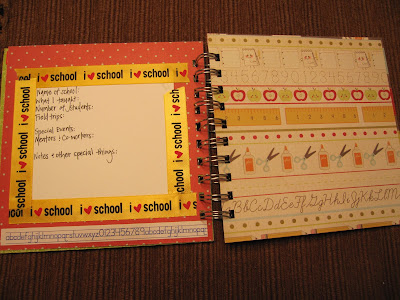 i ♥ school i ♥ school i ♥ school
Name of school:
What I taught:
Number of Students:
Field trips:
Special Events:
Mentors & Co-workers:
Notes & other special things:
i ♥ school i ♥ school i ♥ school
abcdefghijklmnopqrstuvwxyz0123456789abcdefghijklmnopqr
BbCcDdEeFfGgHhIiJjKkLlM